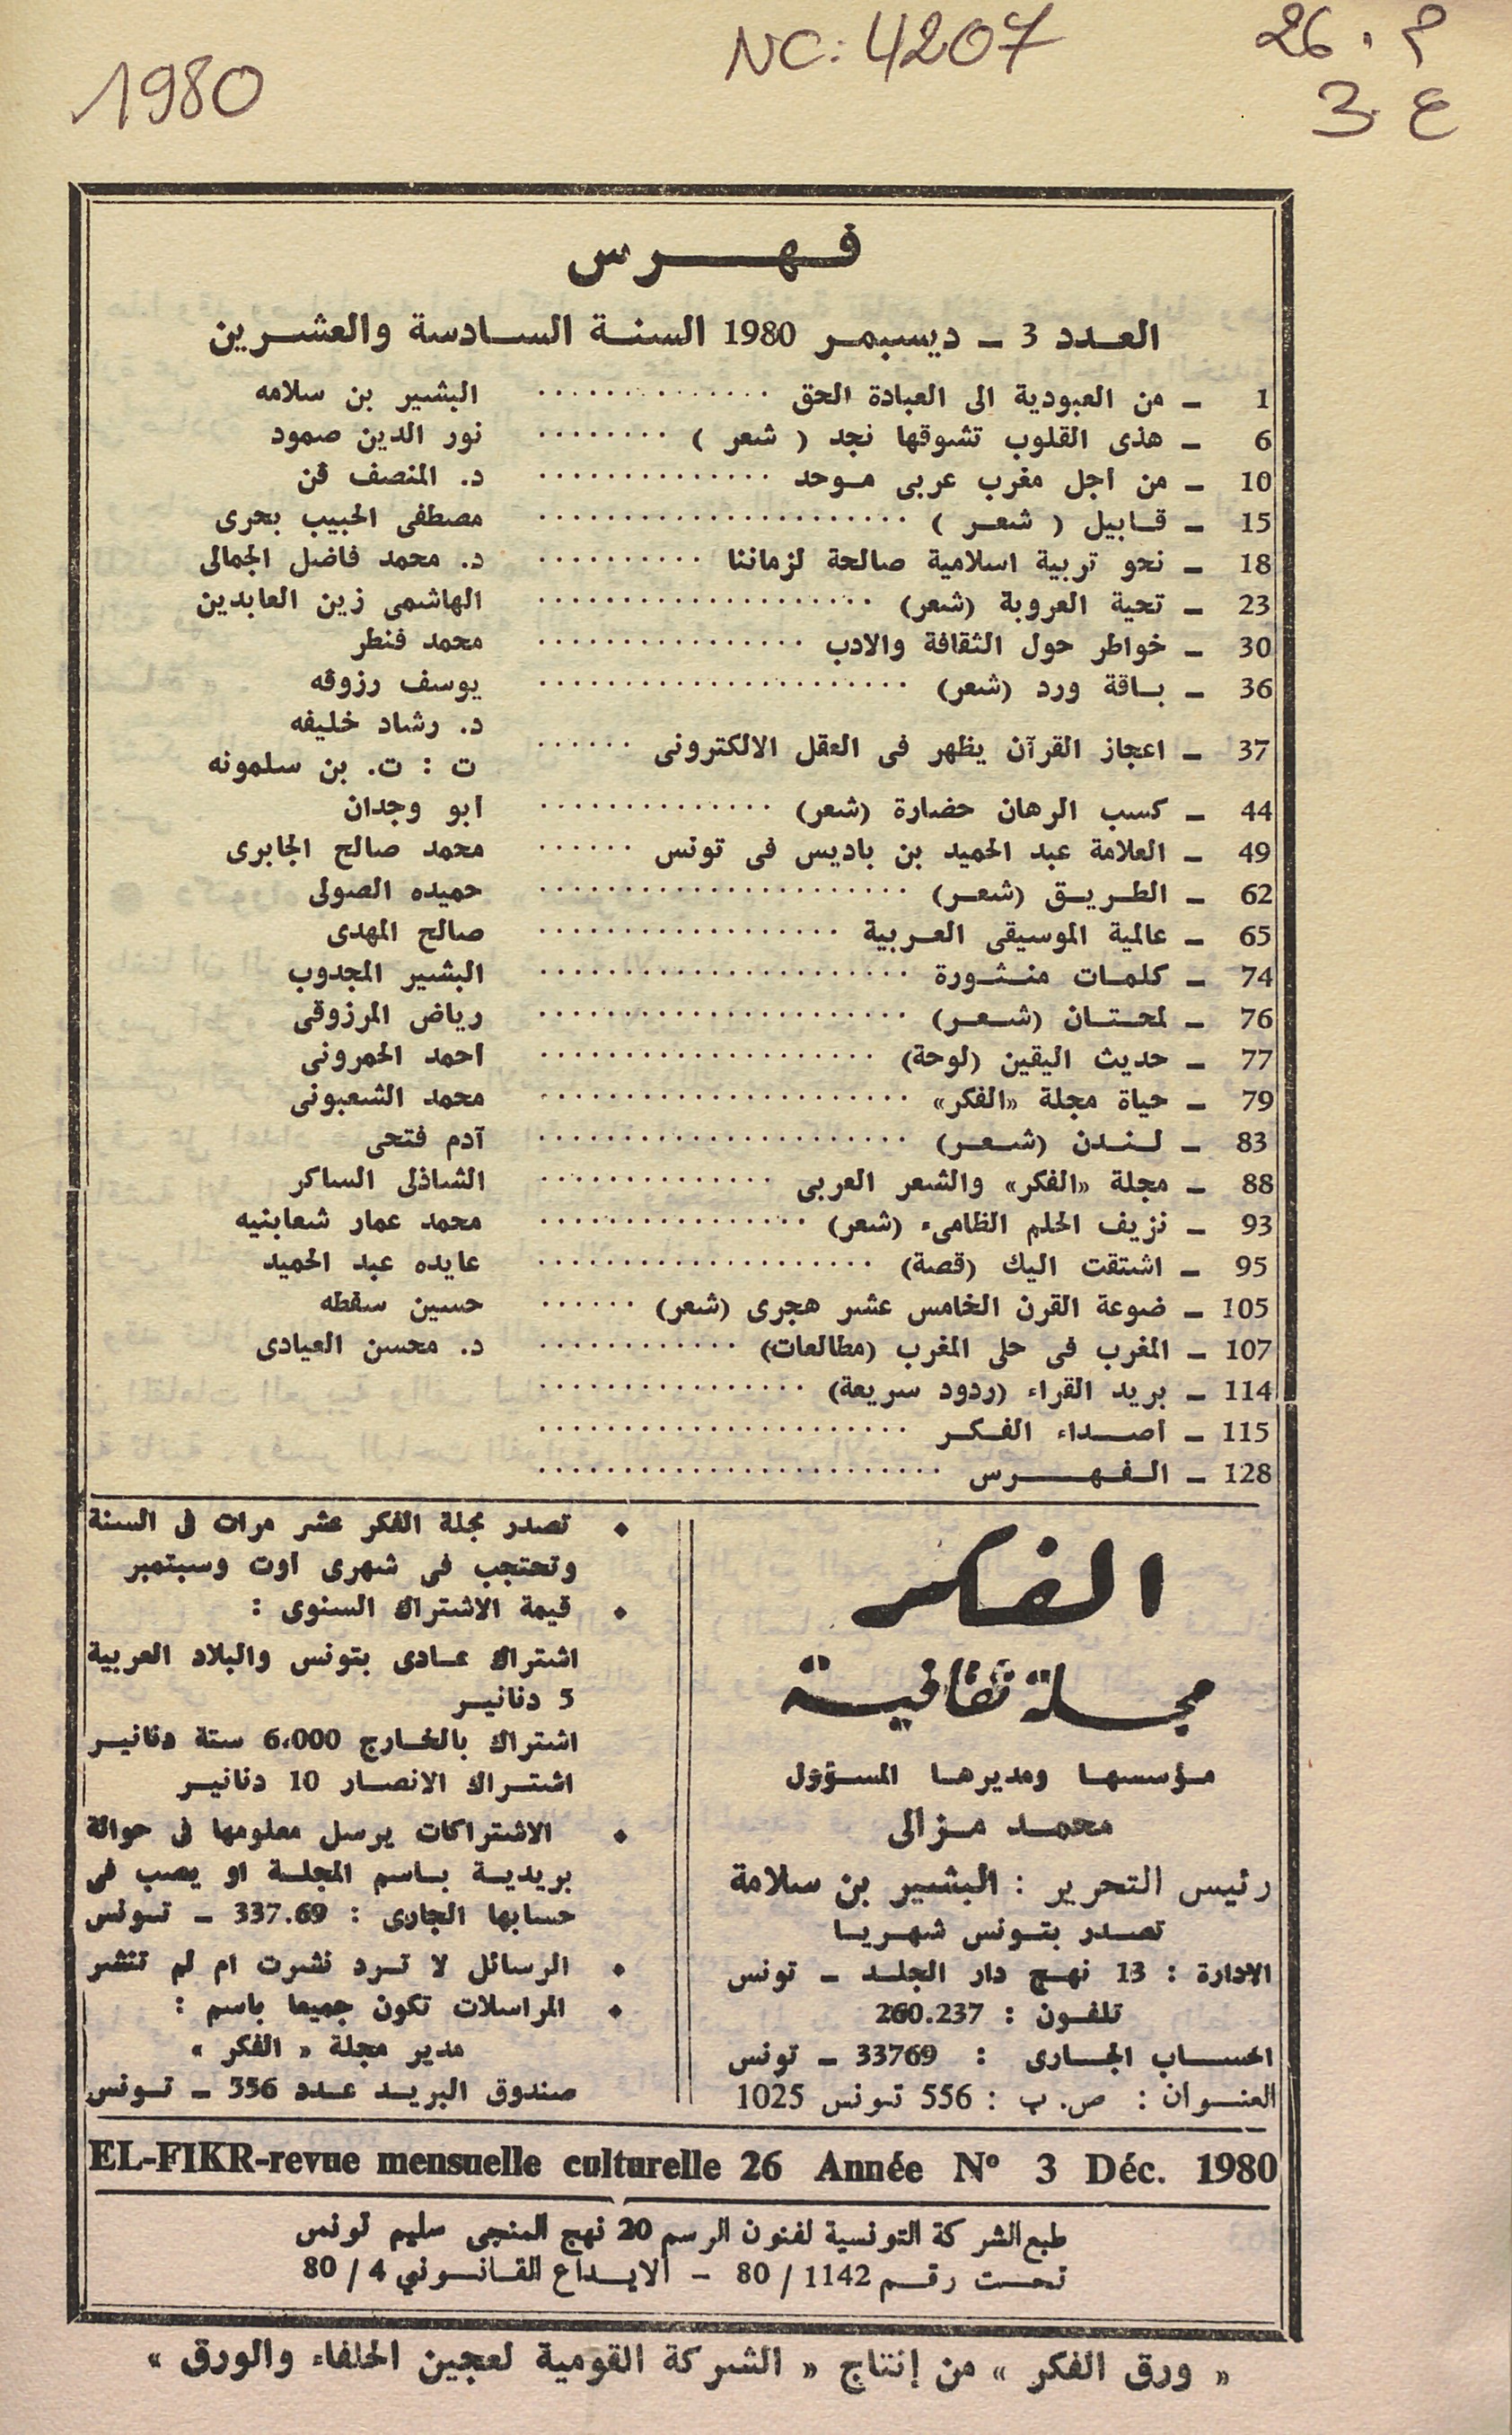 1980
NC: 4207
26 . م
3 ع
فهرس
العدد 3 ـ ديسمبر 1980 السنة السادسة والعشرين
1 ـ من العبودية الى العبادة الحق .............. البشير بن سلامه
6 ـ هذى القلوب تشوقها نجد ( شعر ) ........ نور الدين صمود
10 ـ من اجل مغرب عربى موحد .............. د. المنصف ڨن
15 ـ قابيل ( شعر ) ...................... مصطفى الحبيب بحرى
18 ـ نحو تربية اسلامية صالحة لزماننا .......... د. محمد فاضل الجمالى
23 ـ تحية العروبة (شعر) .................... الهاشمى زين العابدين
30 ـ خواطر حول الثقافة والادب ................ محمد فنطر
36 ـ باقة ورد (شعر) ...................... يوسف رزوقه
37 ـ اعجاز القرآن يظهر فى العقل الالكترونى ...... د. رشاد خليفه
ت : ت. بن سلمونه
44 ـ كسب الرهان حضارة (شعر) .............. ابو وجدان
49 ـ العلامة عبد الحميد بن باديس فى تونس ...... محمد صالح الجابرى
62 ـ الطريق (شعر) ...................... حميده الصولى
65 ـ عالمية الموسيقى العربية .................. صالح المهدى
74 ـ كلمات منثورة ...................... البشير المجدوب
76 ـ لمحتان (شعر) ...................... رياض المرزوقى
77 ـ حديث اليقين (لوحة) .................... احمد الحمرونى
79 ـ حياة مجلة «الفكر» ...................... محمد الشعبونى
83 ـ لندن (شعر) ...................... آدم فتحى
88 ـ مجلة «الفكر» والشعر العربى .............. الشاذلى الساكر
93 ـ نزيف الحلم الظامىء (شعر) ................ محمد عمار شعابنيه
95 ـ اشتقت اليك (قصة) .................... عايده عبد الحميد
105 ـ ضوعة القرن الخامس عشر هجرى (شعر) ...... حسين سقطه
107 ـ المغرب فى حلى المغرب (مطالعات) ............ د. محسن العيادى
114 ـ بريد القراء (ردود سريعة) ................
115 ـ اصداء الفكر ......................
128 ـ الفهرس ........................
الفكر
مجلة ثقافية
مؤسسها ومديرها المسؤول
محمد مزالى
رئيس التحرير : البشير بن سلامة
تصدر بتونس شهريا
الادارة : 13 نهج دار الجلد ـ تونس
تلفون : 260.237
الحساب الجارى : 33769 ـ تونس
العنوان : ص. ب : 556 تونس 1025
♦ تصدر مجلة الفكر عشر مرات فى السنة
وتحتجب فى شهرى اوت وسبتمبر
♦ قيمة الاشتراك السنوى :
اشتراك عادى بتونس والبلاد العربية
5 دنانير
اشتراك بالخارج 6،000 ستة دنانير
اشتراك الانصار 10 دنانير
♦ الاشتراكات يرسل معلومها فى حوالة
بريدية باسم المجلة او يصب فى
حسابها الجارى : 337.69 ـ تونس
♦ الرسائل لا ترد نشرت ام لم تنشر
♦ المراسلات تكون جميعا باسم :
مدير مجلة « الفكر »
صندوق البريد عدد 556 ـ تونس
EL-FIKR-revue mensuelle culturelle 26 Année N° 3 Déc. 1980
طبع الشركة التونسية لفنون الرسم 20 نهج المنجى سليم تونس
تحت رقم 1142 / 80 - الايداع القانوني 4 / 80
« ورق الفكر » من إنتاج « الشركة القومية لعجين الحلفاء والورق »